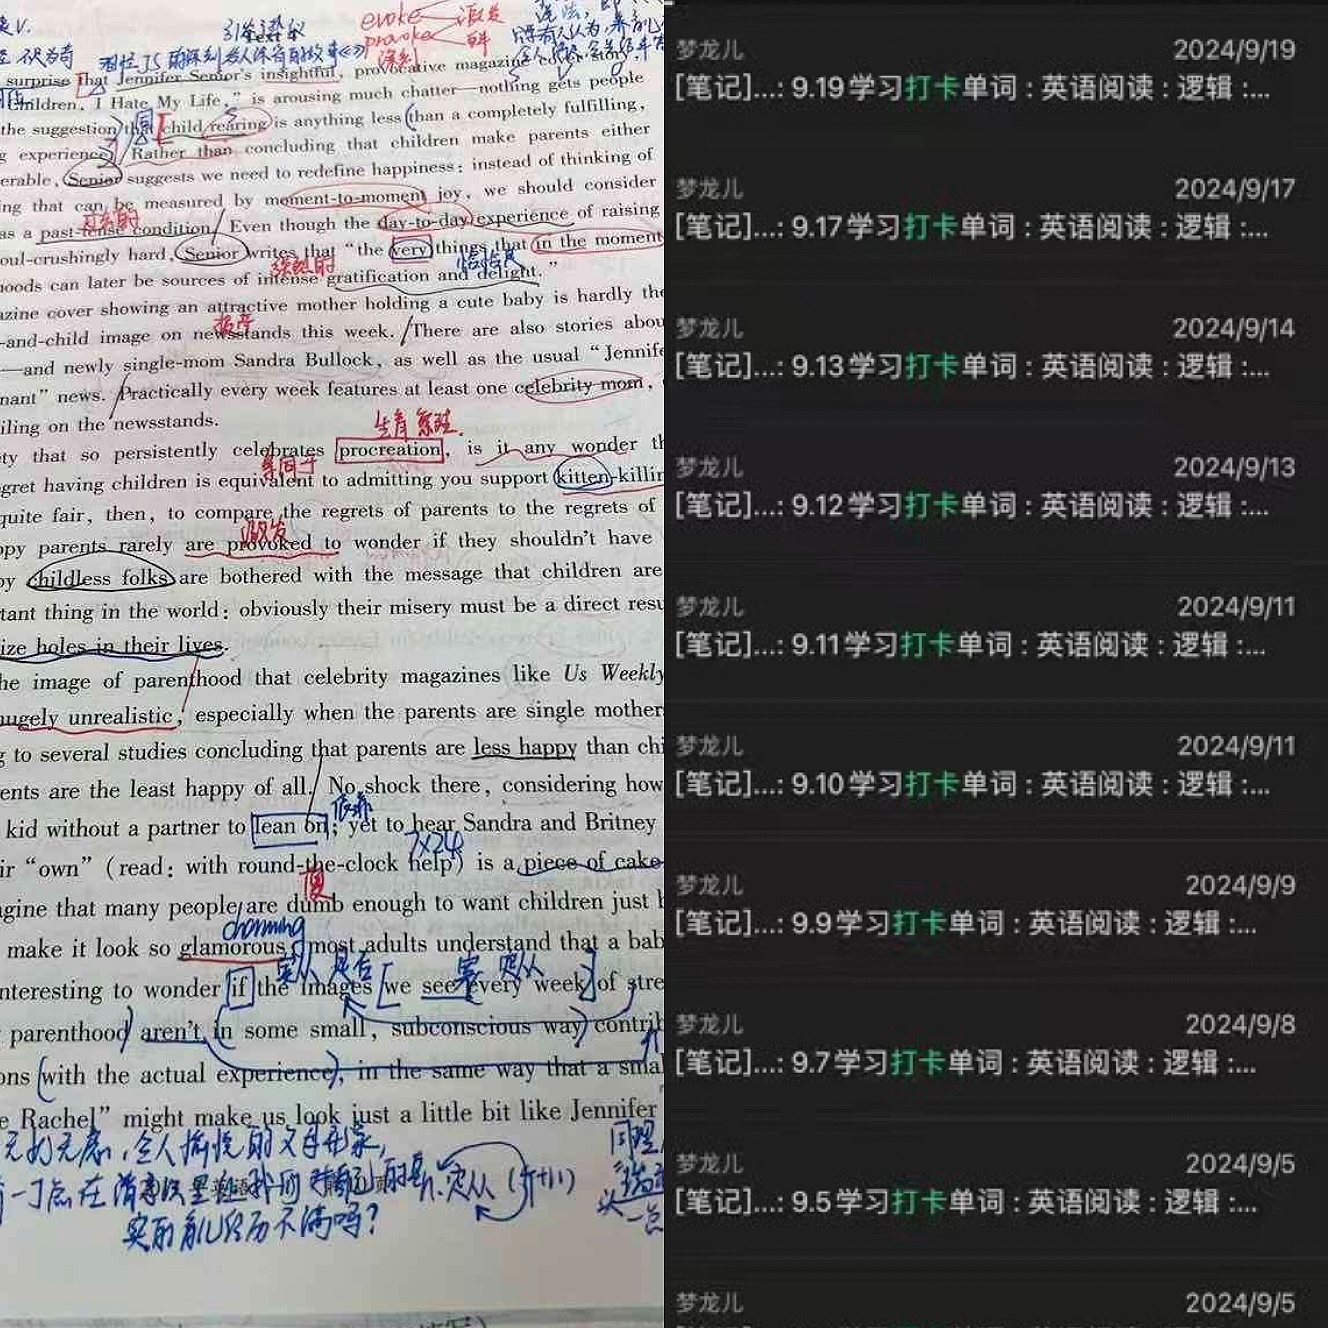 引人注意
evoke 激发
provoke
surprise that Jennifer Senior's insightful, provocative magazine cover story,
Children, I Hate My Life," is arousing much chatter—nothing gets people
the suggestion that child rearing is anything less than a completely fulfilling,
experience. Rather than concluding that children make parents either
erable, Senior suggests we need to redefine happiness: instead of thinking of
ing that can be measured by moment-to-moment joy, we should consider
过去的
as a past-tense condition. Even though the day-to-day experience of raising
oul-crushingly hard, Senior writes that "the very things that in the moment
强烈的 恰恰是
oods can later be sources of intense gratification and delight."
azine cover showing an attractive mother holding a cute baby is hardly the
报亭
-and-child image on newsstands this week. There are also stories abou
—and newly single-mom Sandra Bullock, as well as the usual "Jennife
nant" news. Practically every week features at least one celebrity mom,
iling on the newsstands.
生育 繁殖
ty that so persistently celebrates procreation, is it any wonder th
等同于
gret having children is equivalent to admitting you support kitten-killin
quite fair, then, to compare the regrets of parents to the regrets of
激发
ppy parents rarely are provoked to wonder if they shouldn't have
by childless folks are bothered with the message that children are
tant thing in the world: obviously their misery must be a direct resu
ize holes in their lives.
he image of parenthood that celebrity magazines like Us Weekly
hugely unrealistic, especially when the parents are single mothers
g to several studies concluding that parents are less happy than chi
ents are the least happy of all. No shock there, considering how
依靠
kid without a partner to lean on; yet to hear Sandra and Britney
7×24h
ir "own" (read: with round-the-clock help) is a piece of cake
傻
agine that many people are dumb enough to want children just b
charming
make it look so glamorous, most adults understand that a bab
宾从 是否 定从
nteresting to wonder if the images we see every week of stre
parenthood aren't in some small, subconscious way contrib
ons with the actual experience, in the same way that a smal
e Rachel" might make us look just a little bit like Jennifer
无忧无虑,令人愉悦的父母形象,
定从
实际育儿经历不满吗?
同理
梦龙儿 2024/9/19
[笔记]...: 9.19学习打卡单词 : 英语阅读 : 逻辑 :...
梦龙儿 2024/9/17
[笔记]...: 9.17学习打卡单词 : 英语阅读 : 逻辑 :...
梦龙儿 2024/9/14
[笔记]...: 9.13学习打卡单词 : 英语阅读 : 逻辑 :...
梦龙儿 2024/9/13
[笔记]...: 9.12学习打卡单词 : 英语阅读 : 逻辑 :...
梦龙儿 2024/9/11
[笔记]...: 9.11学习打卡单词 : 英语阅读 : 逻辑 :...
梦龙儿 2024/9/11
[笔记]...: 9.10学习打卡单词 : 英语阅读 : 逻辑 :...
梦龙儿 2024/9/9
[笔记]...: 9.9学习打卡单词 : 英语阅读 : 逻辑 :...
梦龙儿 2024/9/8
[笔记]...: 9.7学习打卡单词 : 英语阅读 : 逻辑 :...
梦龙儿 2024/9/5
[笔记]...: 9.5学习打卡单词 : 英语阅读 : 逻辑 :...
梦龙儿 2024/9/5